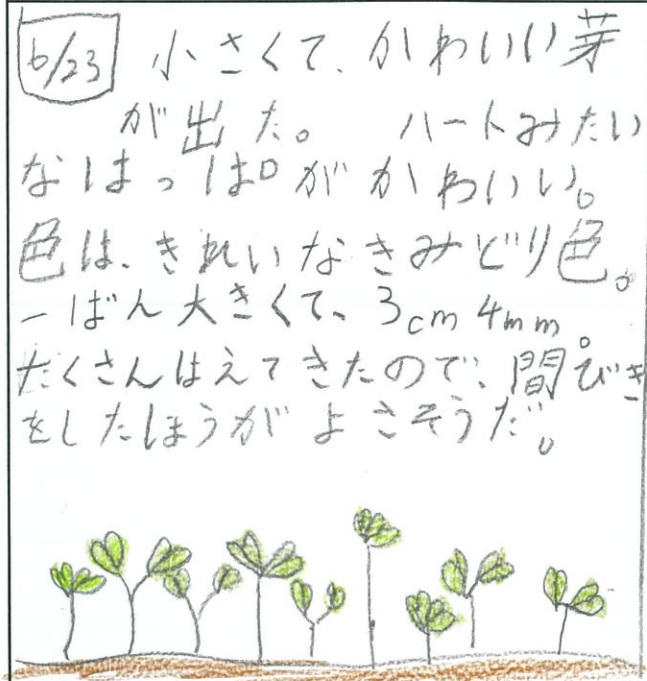 6/23 小さくて、かわいい芽
が出た。 ハートみたい
なはっぱがかわいい。
色は、きれいなきみどり色。
一ばん大きくて、3cm4mm。
たくさんはえてきたので、間びき
をしたほうがよさそうだ。